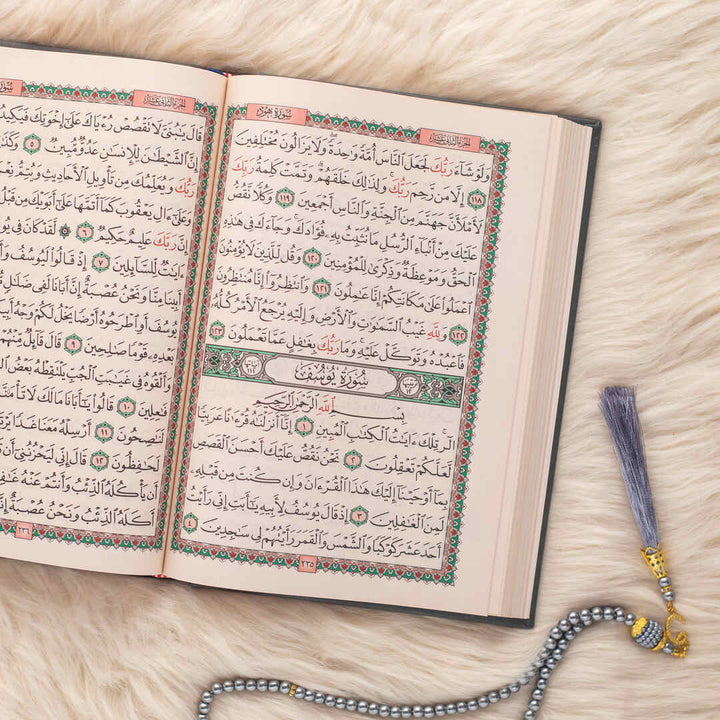 سُورَةُ هُودٍ
الجزء الثاني عشر
وَلَوْ شَآءَ رَبُّكَ لَجَعَلَ ٱلنَّاسَ أُمَّةً وَٰحِدَةً وَلَا يَزَالُونَ مُخْتَلِفِينَ
١١٨ إِلَّا مَن رَّحِمَ رَبُّكَ وَلِذَٰلِكَ خَلَقَهُمْ وَتَمَّتْ كَلِمَةُ رَبِّكَ
لَأَمْلَأَنَّ جَهَنَّمَ مِنَ ٱلْجِنَّةِ وَٱلنَّاسِ أَجْمَعِينَ ١١٩ وَكُلًّا نَّقُصُّ
عَلَيْكَ مِنْ أَنۢبَآءِ ٱلرُّسُلِ مَا نُثَبِّتُ بِهِۦ فُؤَادَكَ وَجَآءَكَ فِى هَٰذِهِ
ٱلْحَقُّ وَمَوْعِظَةٌ وَذِكْرَىٰ لِلْمُؤْمِنِينَ ١٢٠ وَقُل لِّلَّذِينَ لَا يُؤْمِنُونَ
ٱعْمَلُوا۟ عَلَىٰ مَكَانَتِكُمْ إِنَّا عَٰمِلُونَ ١٢١ وَٱنتَظِرُوٓا۟ إِنَّا مُنتَظِرُونَ
١٢٢ وَلِلَّهِ غَيْبُ ٱلسَّمَٰوَٰتِ وَٱلْأَرْضِ وَإِلَيْهِ يُرْجَعُ ٱلْأَمْرُ كُلُّهُۥ
فَٱعْبُدْهُ وَتَوَكَّلْ عَلَيْهِ وَمَا رَبُّكَ بِغَٰفِلٍ عَمَّا تَعْمَلُونَ ١٢٣
سُورَةُ يُوسُفَ
بِسْمِ ٱللَّهِ ٱلرَّحْمَٰنِ ٱلرَّحِيمِ
الٓر تِلْكَ ءَايَٰتُ ٱلْكِتَٰبِ ٱلْمُبِينِ ١ إِنَّآ أَنزَلْنَٰهُ قُرْءَٰنًا عَرَبِيًّا
لَّعَلَّكُمْ تَعْقِلُونَ ٢ نَحْنُ نَقُصُّ عَلَيْكَ أَحْسَنَ ٱلْقَصَصِ
بِمَآ أَوْحَيْنَآ إِلَيْكَ هَٰذَا ٱلْقُرْءَانَ وَإِن كُنتَ مِن قَبْلِهِۦ
لَمِنَ ٱلْغَٰفِلِينَ ٣ إِذْ قَالَ يُوسُفُ لِأَبِيهِ يَٰٓأَبَتِ إِنِّى رَأَيْتُ
أَحَدَ عَشَرَ كَوْكَبًا وَٱلشَّمْسَ وَٱلْقَمَرَ رَأَيْتُهُمْ لِى سَٰجِدِينَ ٤
٢٣٥
الجزء الثاني عشر
قَالَ يَٰبُنَىَّ لَا تَقْصُصْ رُءْيَاكَ عَلَىٰٓ إِخْوَتِكَ فَيَكِيدُوا۟
إِنَّ ٱلشَّيْطَٰنَ لِلْإِنسَٰنِ عَدُوٌّ مُّبِينٌ ٥
رَبُّكَ وَيُعَلِّمُكَ مِن تَأْوِيلِ ٱلْأَحَادِيثِ وَيُتِمُّ
وَعَلَىٰٓ ءَالِ يَعْقُوبَ كَمَآ أَتَمَّهَا عَلَىٰٓ أَبَوَيْكَ مِن قَبْلُ
إِنَّ رَبَّكَ عَلِيمٌ حَكِيمٌ ٦ لَّقَدْ كَانَ فِى يُوسُفَ
ءَايَٰتٌ لِّلسَّآئِلِينَ ٧ إِذْ قَالُوا۟ لَيُوسُفُ
أَبِينَا مِنَّا وَنَحْنُ عُصْبَةٌ إِنَّ أَبَانَا لَفِى
يُوسُفَ أَوِ ٱطْرَحُوهُ أَرْضًا يَخْلُ لَكُمْ وَجْهُ
بَعْدِهِۦ قَوْمًا صَٰلِحِينَ ٩ قَالَ قَآئِلٌ مِّنْهُمْ
وَأَلْقُوهُ فِى غَيَٰبَتِ ٱلْجُبِّ يَلْتَقِطْهُ بَعْضُ
فَٰعِلِينَ ١٠ قَالُوا۟ يَٰٓأَبَانَا مَا لَكَ لَا
لَنَٰصِحُونَ ١١ أَرْسِلْهُ مَعَنَا غَدًا
لَحَٰفِظُونَ ١٢ قَالَ إِنِّى لَيَحْزُنُنِىٓ أَن
أَن يَأْكُلَهُ ٱلذِّئْبُ وَأَنتُمْ عَنْهُ
أَكَلَهُ ٱلذِّئْبُ وَنَحْنُ عُصْبَةٌ إِنَّآ
٢٣٦